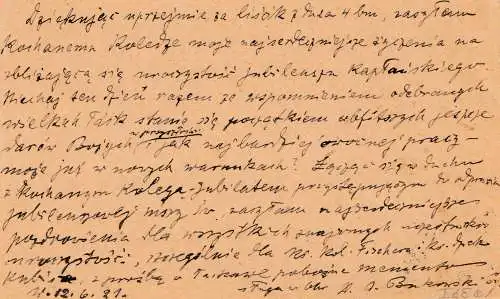 Dziękując uprzejmie za liścik z dnia 4 bm, zasyłam
Kochanemu Koledze moje najserdeczniejsze życzenia na
zbliżającą się uroczystość jubileusza Kapłańskiego.
Niechaj ten dzień razem ze wspomnieniem odebranych
wielkich łask stanie się początkiem obfitszych jeszcze
w przyszłości
darów Bożych i jak najbardziej owocnej pracy
może już w nowych warunkach! Łącząc się w duchu
z Kochanym Kolegą-Jubilatem przystępującym do
jubileuszowej mszy św. zasyłam najserdeczniejsze
pozdrowienia dla wszystkich znajomych uczestników
uroczystości, szczególnie dla ks. kol. Fischera, ks. dyr.
z prośbą o łaskawe pobożne memento
12.6.31.